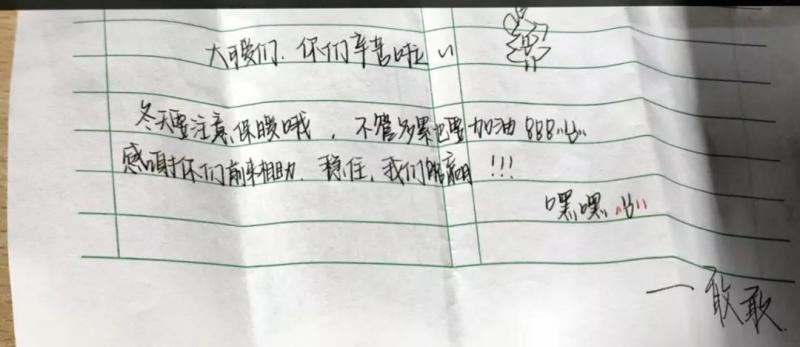 大可爱们，你们辛苦啦~
冬天要注意保暖哦，不管多累也要加油888"ω"
感谢你们前来相助，稳住，我们能赢!!!
嘿嘿"ω"
一敢敢